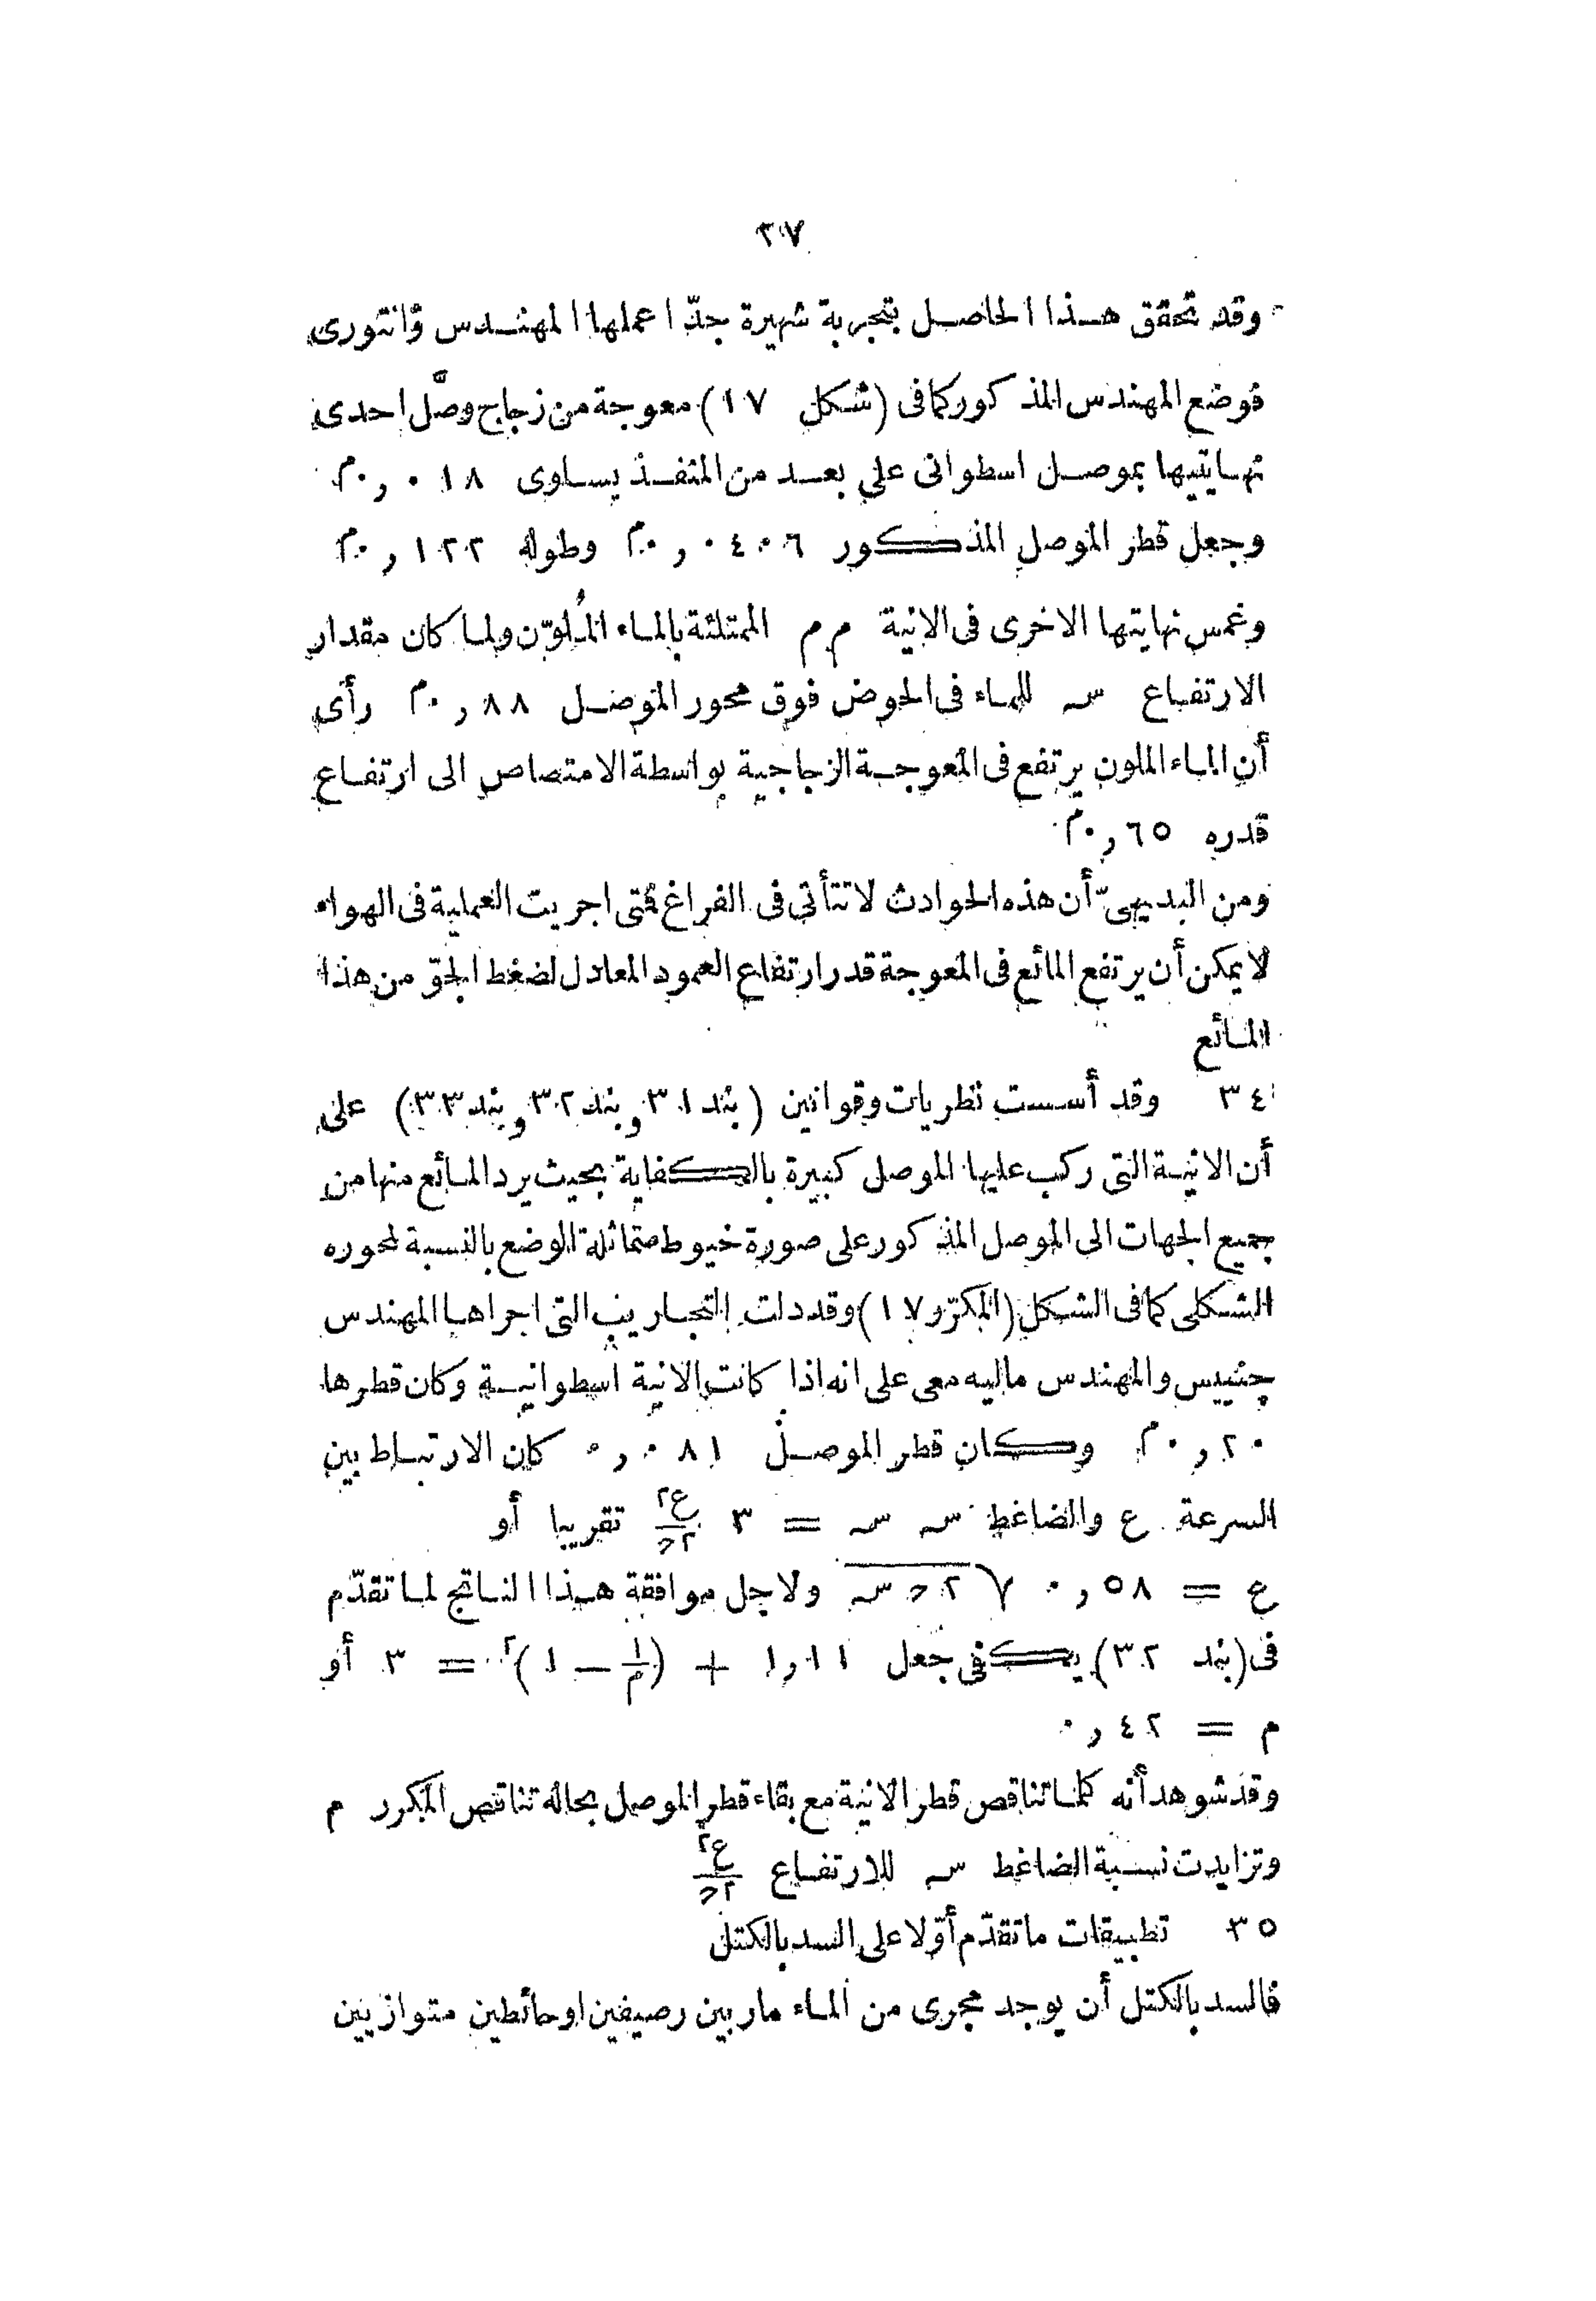 ٣٧
وقد تحقق هذا الحاصل بتجربة شهيرة جدّا عملها المهندس ڤانتورى
فوضع المهندس المذكور كما فى (شكل ١٧) معوجة من زجاج وصَّل احدى
نهايتيها بموصل اسطوانى على بعد من المنفذ يساوى ٠١٨,٠م
وجعل قطر الموصل المذكور ٠٤٠٦,٠م وطوله ١٢٢,٠م
وغمس نهايتها الاخرى فى الانية م م الممتلئة بالماء المُلوّن ولما كان مقدار
الارتفاع س للماء فى الحوض فوق محور الموصل ٨٨,٠م رأى
أن الماء الملون يرتفع فى المعوجة الزجاجية بواسطة الامتصاص الى ارتفاع
قدره ٦٥,٠م
ومن البديهىّ أن هذه الحوادث لا تتأتى فى الفراغ فمتى اجريت العملية فى الهواء
لا يمكن أن يرتفع المائع فى المعوجة قدر ارتفاع العمود المعادل لضغط الجوّ من هذا
المائع
٣٤ وقد أسست نظريات وقوانين (بند ٣١ وبند ٣٢ وبند ٣٣) على
أن الانية التى ركب عليها الموصل كبيرة بالكفاية بحيث يرد المائع منها من
جميع الجهات الى الموصل المذكور على صورة خيوط متماثلة الوضع بالنسبة لمحوره
الشكلى كما فى الشكل (المكرّر ١٧) وقد دلت التجاريب التى اجراها المهندس
چنييس والمهندس ماليه معى على انه اذا كانت الانية اسطوانية وكان قطرها
٢٠,٠م وكان قطر الموصل ٠٨١,٠ كان الارتباط بين
السرعة ع والضاغط س س = ٣ ع٢/٢ح تقريبا أو
ع = ٥٨,٠ √٢ح س ولاجل موافقة هذا الناتج لما تقدّم
فى (بند ٣٢) يكفى جعل ١,١١ + (١/م − ١)٢ = ٣ أو
م = ٤٢,٠
وقد شوهد أنه كلما تناقص قطر الانية مع بقاء قطر الموصل بحاله تناقص المكرر م
وتزايدت نسبة الضاغط س للارتفاع ع٢/٢ح
٣٥ تطبيقات ما تقدّم أوّلا على السد بالكتل
فالسد بالكتل أن يوجد مجرى من الماء مار بين رصيفين او حائطين متوازيين